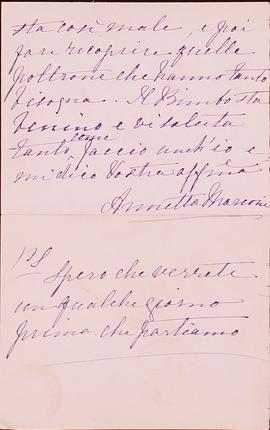 sta così male, e poi
fare ricoprire quelle
poltrone che hanno tanto
bisogna. Il Bimbo sta
benino e vi saluta
tanto come faccio anch'io e
mi dico Vostra affma
Annetta Marconi
PS
Spero che verrete
un qualche giorno
prima che partiamo